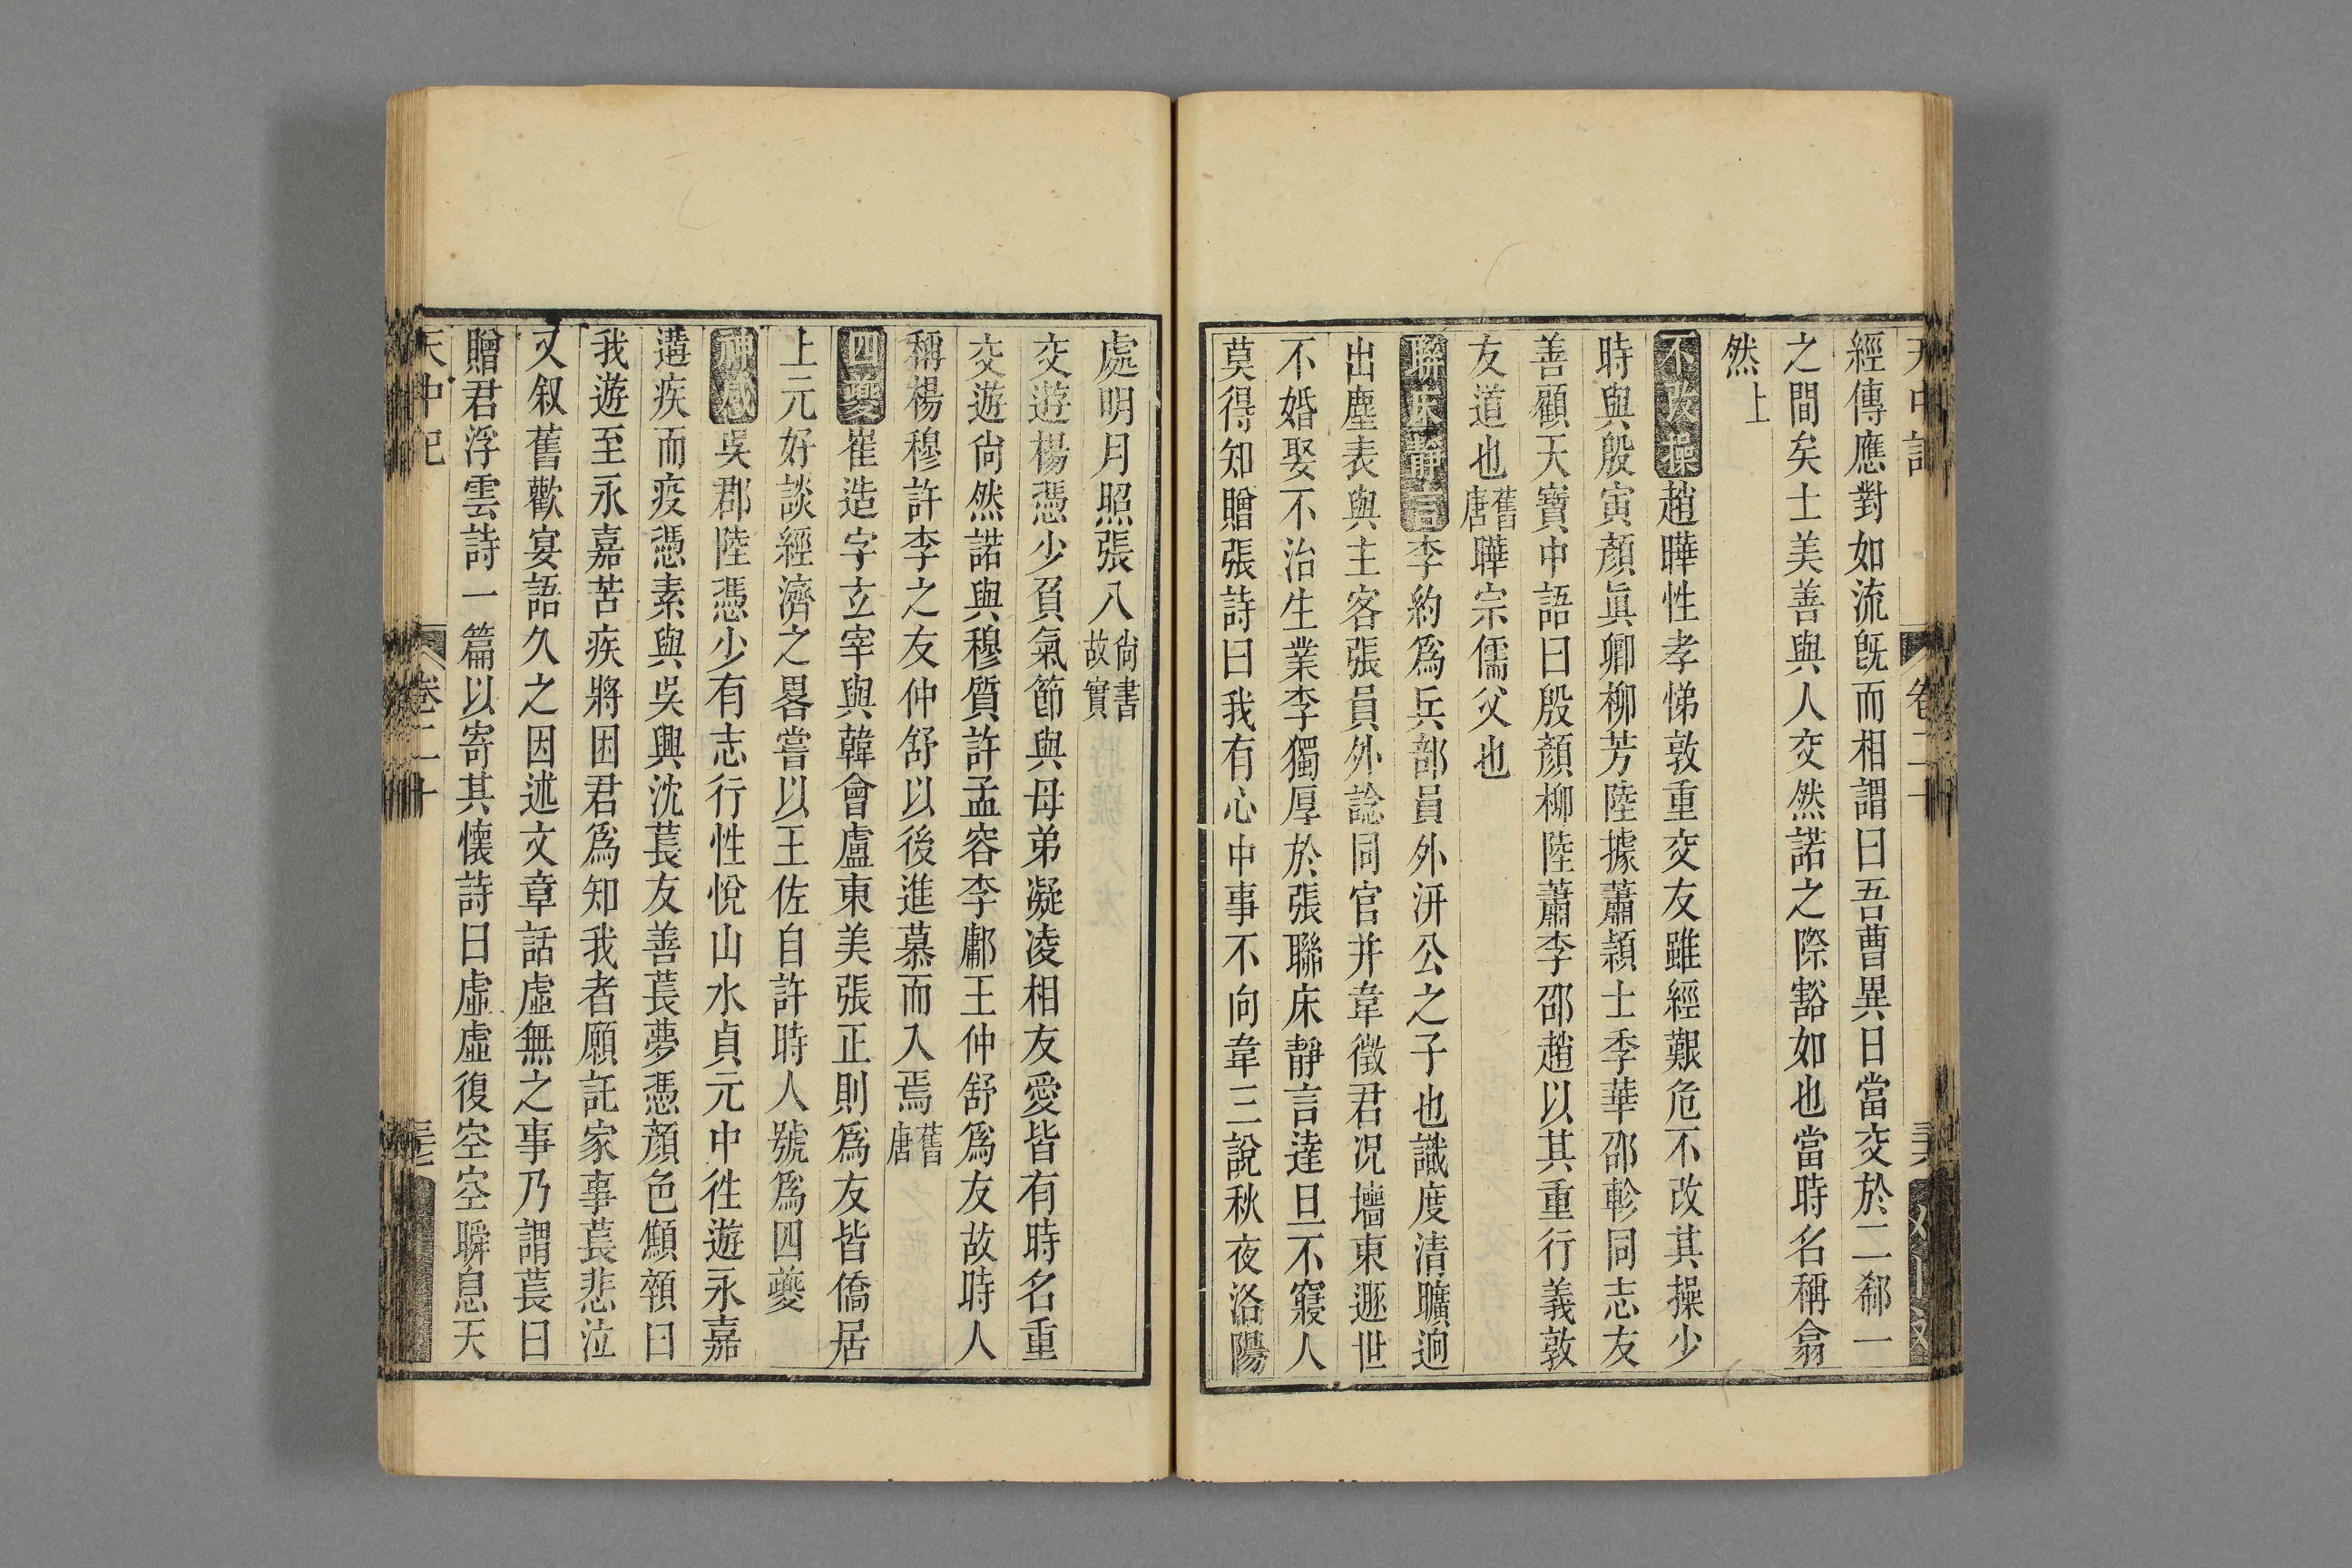 天中記
卷二十
經傳應對如流旣而相謂曰吾曹異日當交於二郗一
之間矣士美善與人交然諾之際豁如也當時名稱翕
然上
不改操趙曄性孝悌敦重交友雖經艱危不改其操少
時與殷寅顏眞卿柳芳陸據蕭穎士李華邵軫同志友
善顧天寶中語曰殷顏柳陸蕭李邵趙以其重行義敦
友道也舊唐曄宗儒父也
聯床靜言李約爲兵部員外汧公之子也識度清曠逈
出塵表與主客張員外諗同官并韋徵君况墻東遯世
不婚娶不治生業李獨厚於張聯床靜言達旦不寢人
莫得知贈張詩曰我有心中事不向韋三說秋夜洛陽
處明月照張八尙書故實
交遊楊憑少負氣節與母弟凝凌相友愛皆有時名重
交遊尙然諾與穆質許孟容李鄘王仲舒爲友故時人
稱楊穆許李之友仲舒以後進慕而入焉舊唐
四夔崔造字玄宰與韓會盧東美張正則爲友皆僑居
上元好談經濟之畧嘗以王佐自許時人號爲四夔
神感吳郡陸憑少有志行性悅山水貞元中徃遊永嘉
遘疾而疫憑素與吳興沈萇友善萇夢憑顏色顦顇曰
我遊至永嘉苦疾將困君爲知我者願託家事萇悲泣
又叙舊歡宴語久之因述文章話虛無之事乃謂萇曰
贈君浮雲詩一篇以寄其懷詩曰虛虛復空空瞬息天
天中記
卷二十